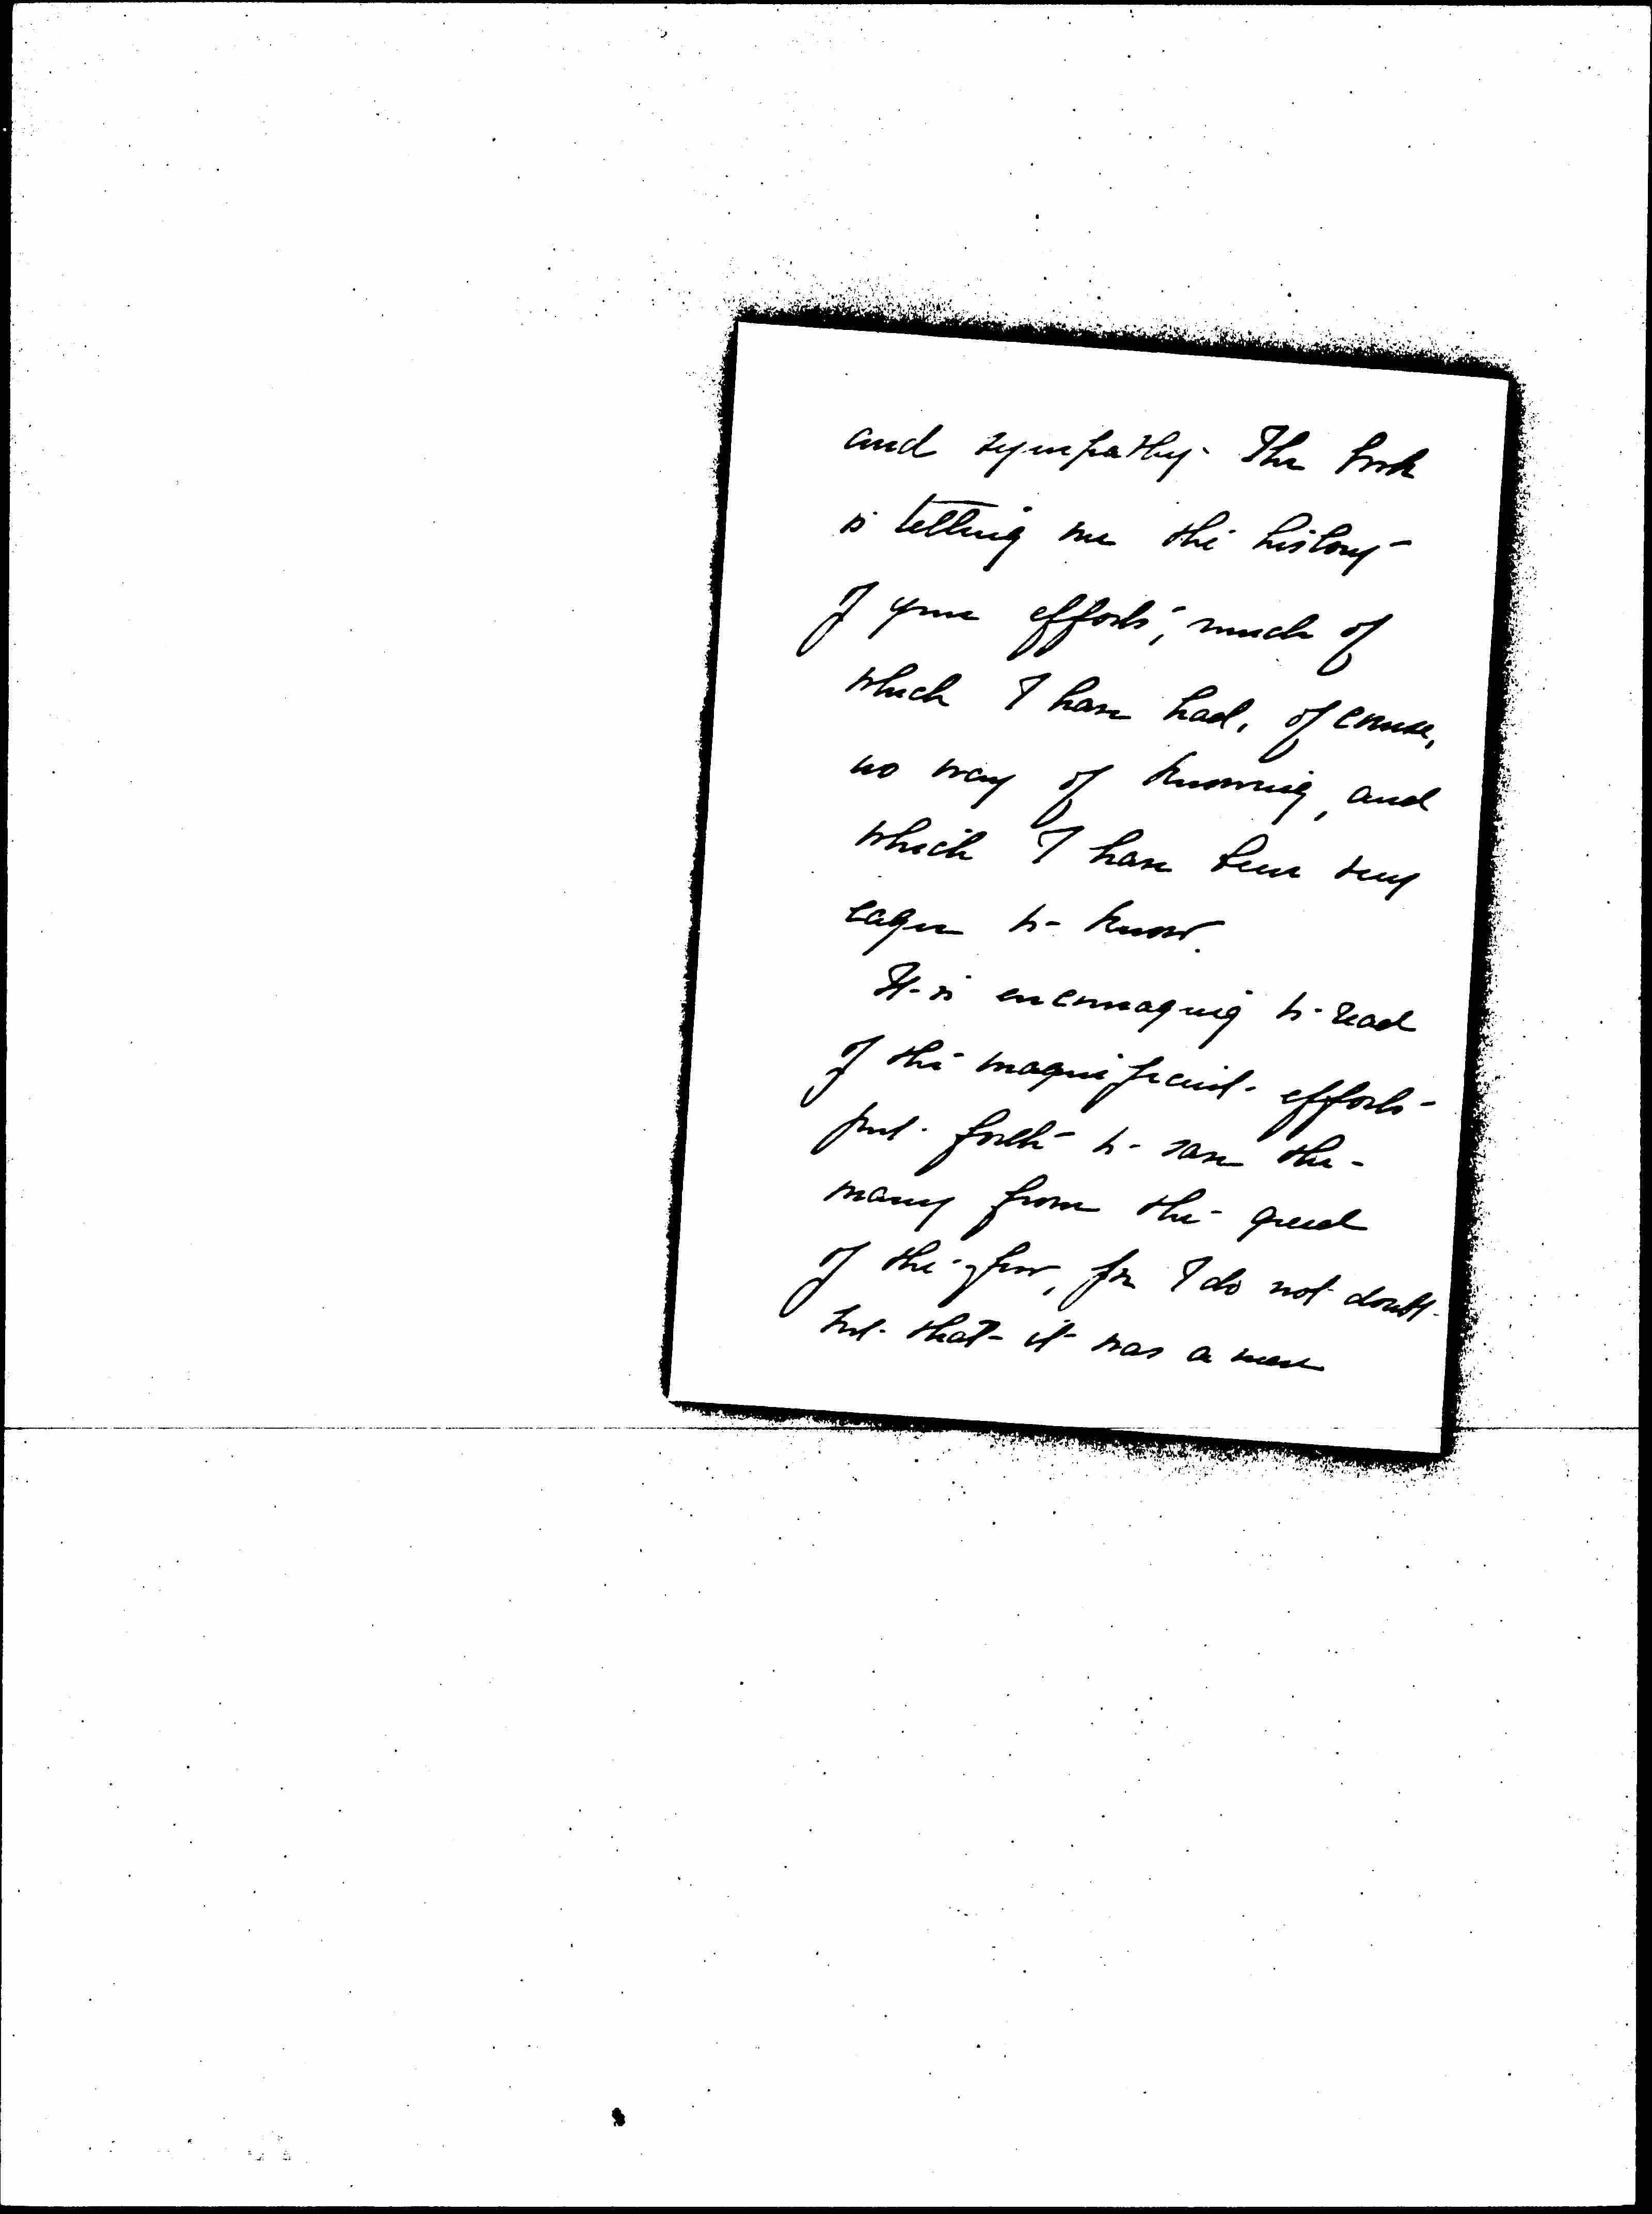 and sympathy. The book
is telling me the history
of your efforts, much of
which I have had, of course,
no way of knowing, and
which I have been very
eager to know.
It is encouraging to read
of the magnificent efforts
put forth to save the
many from the greed
of the few, for I do not doubt
but that it was a